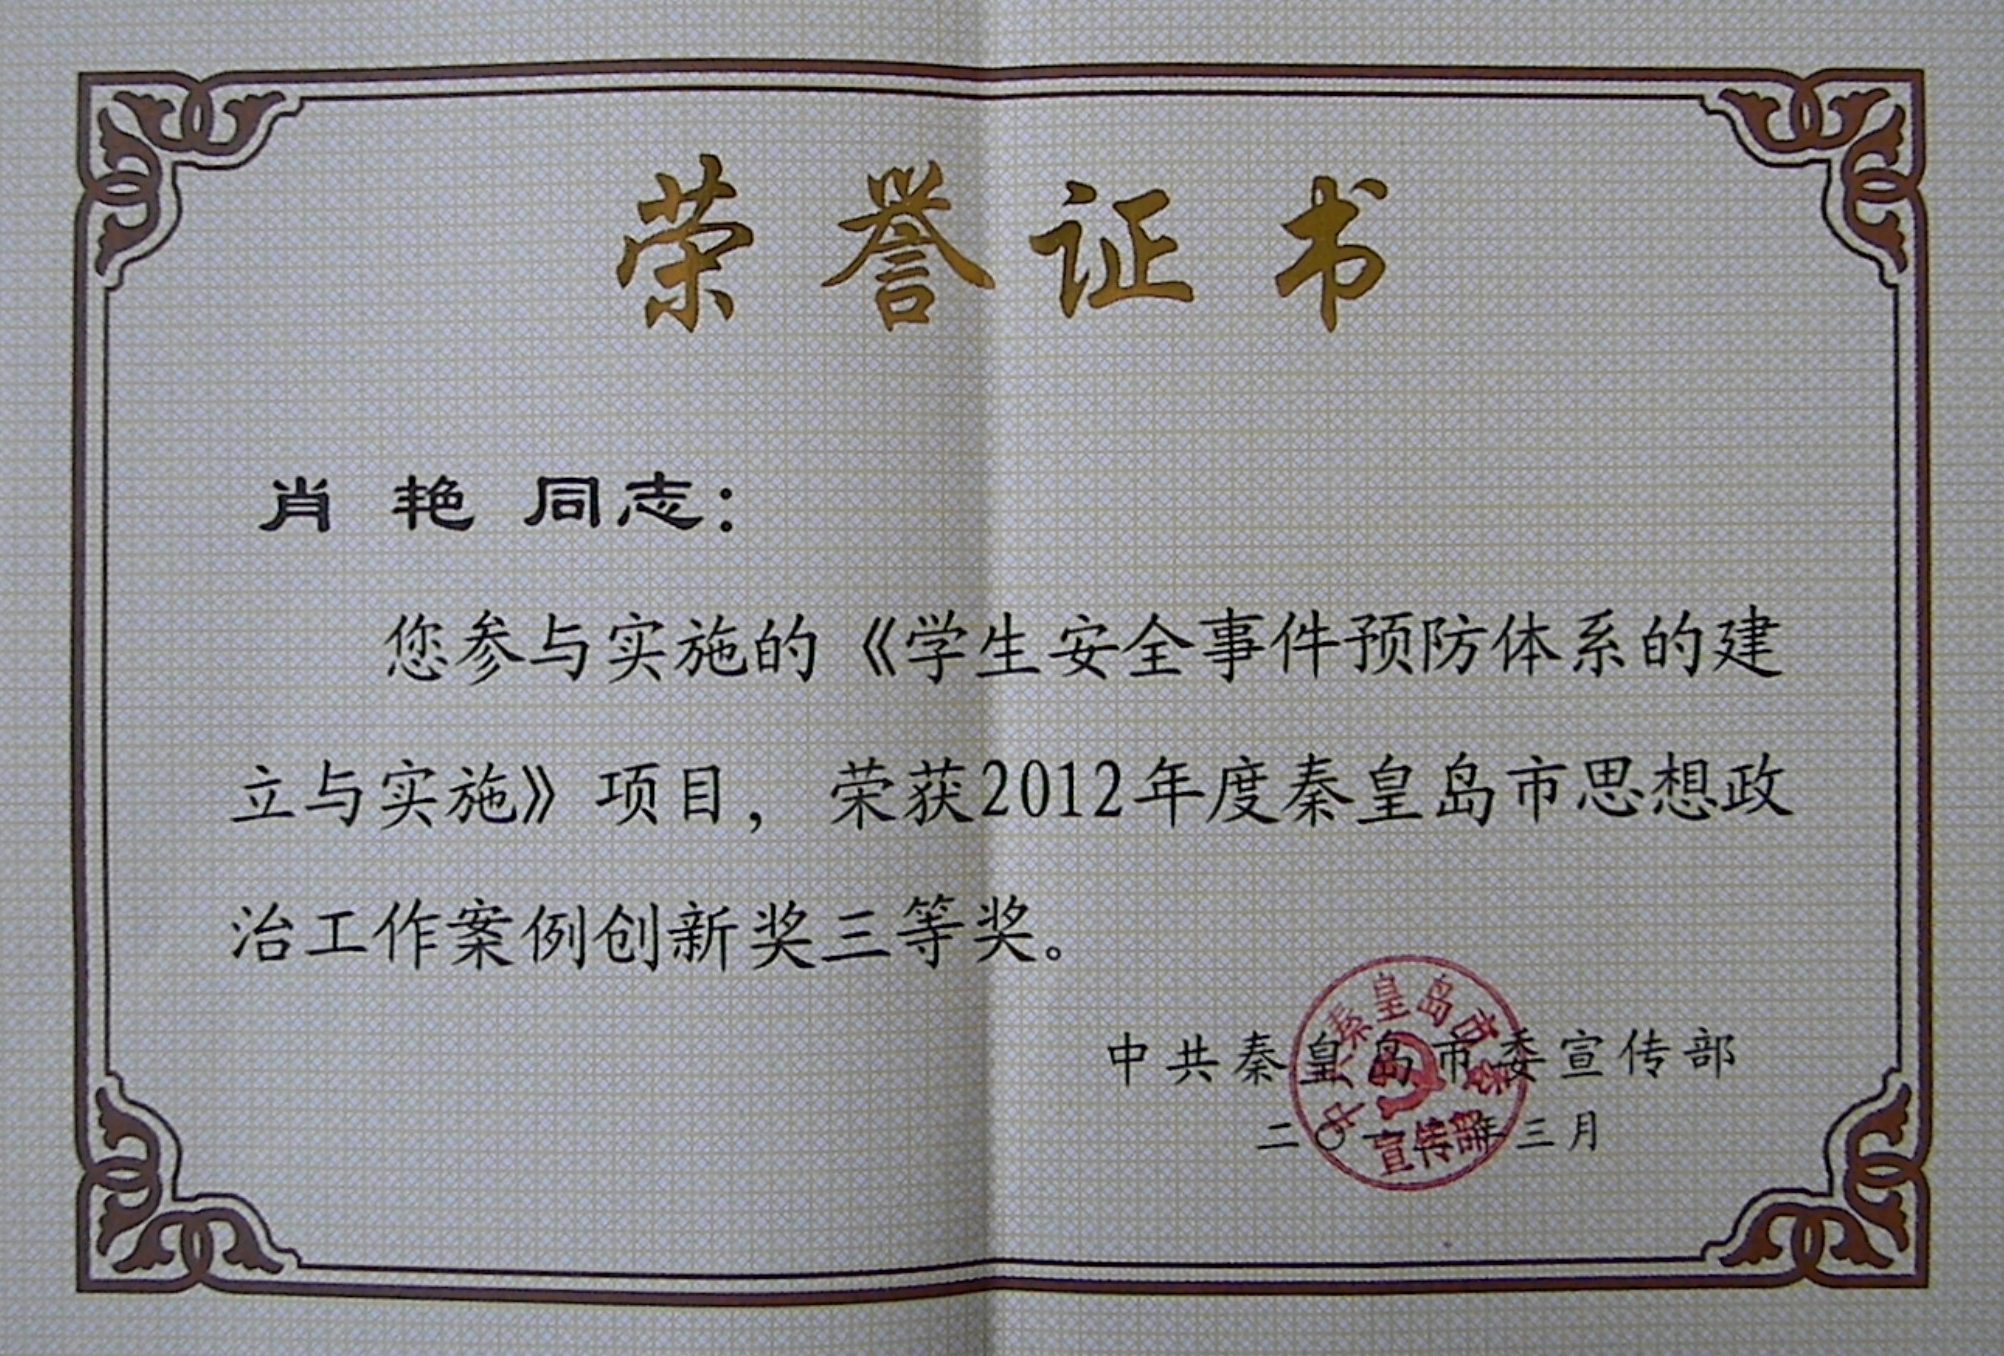 荣誉证书
肖 艳 同志：
您参与实施的《学生安全事件预防体系的建
立与实施》项目，荣获2012年度秦皇岛市思想政
治工作案例创新奖三等奖。
中共秦皇岛市委宣传部
二〇一 年三月
中共秦皇岛市委
宣传部